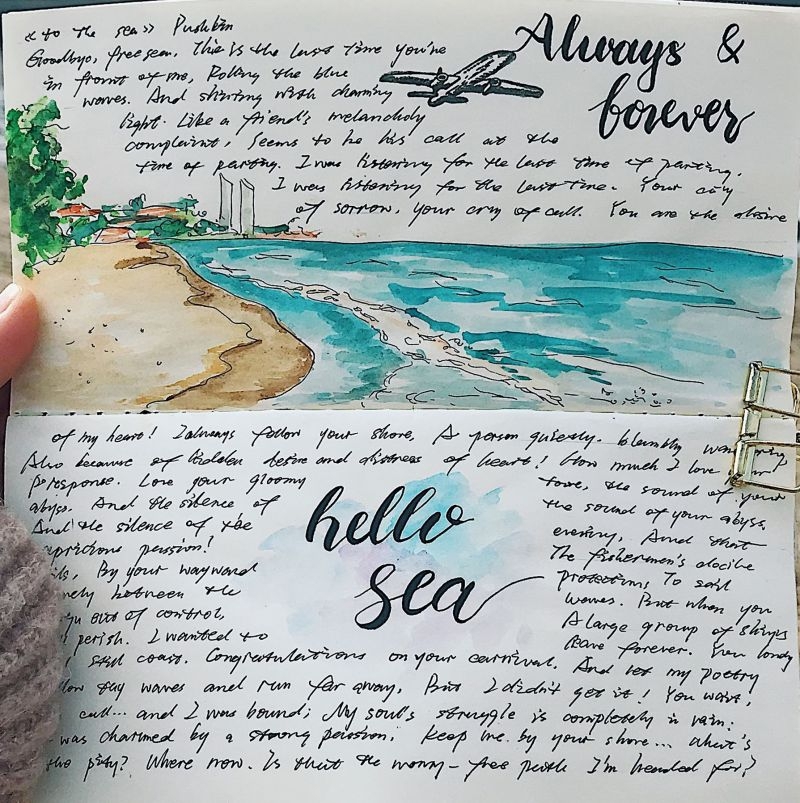 « to the sea » Pushkin
Goodbye, free sea. This is the last time you're
in front of me, Rolling the blue
waves. And shining with charming
light. Like a friend's melancholy
complaint, Seems to be his call at the
time of parting. I was listening for the last time of parting.
I was listening for the last time. Your cry
of sorrow, your cry of call. You are the desire
Always &
forever
of my heart! I always follow your shore, A person quietly. blankly
Also because of hidden desire and distress of heart! How much I love your
response. Love your gloomy
tone, the sound of your
abyss. And the silence of
the sound of your abyss,
And the silence of the
evening, And that
capricious passion!
The fishermen's docile
By your wayward
protection, To sail
between the
waves. But when you
out of control,
A large group of ships
perish. I wanted to
leave forever. You lonely
still coast. Congratulations on your carnival. And let my poetry
thy waves and run far away, But I didn't get it! You wait,
call... and I was bound; My soul's struggle is completely in vain:
was charmed by a strong passion; Keep me by your shore... What's
the pity? Where now. Is that the worry-free path I'm headed for?
hello
sea